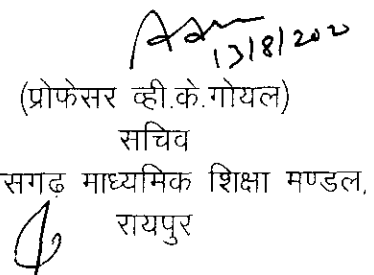 13/8/2020
(प्रोफेसर व्ही.के.गोयल)
सचिव
सगढ़ माध्यमिक शिक्षा मण्डल,
रायपुर